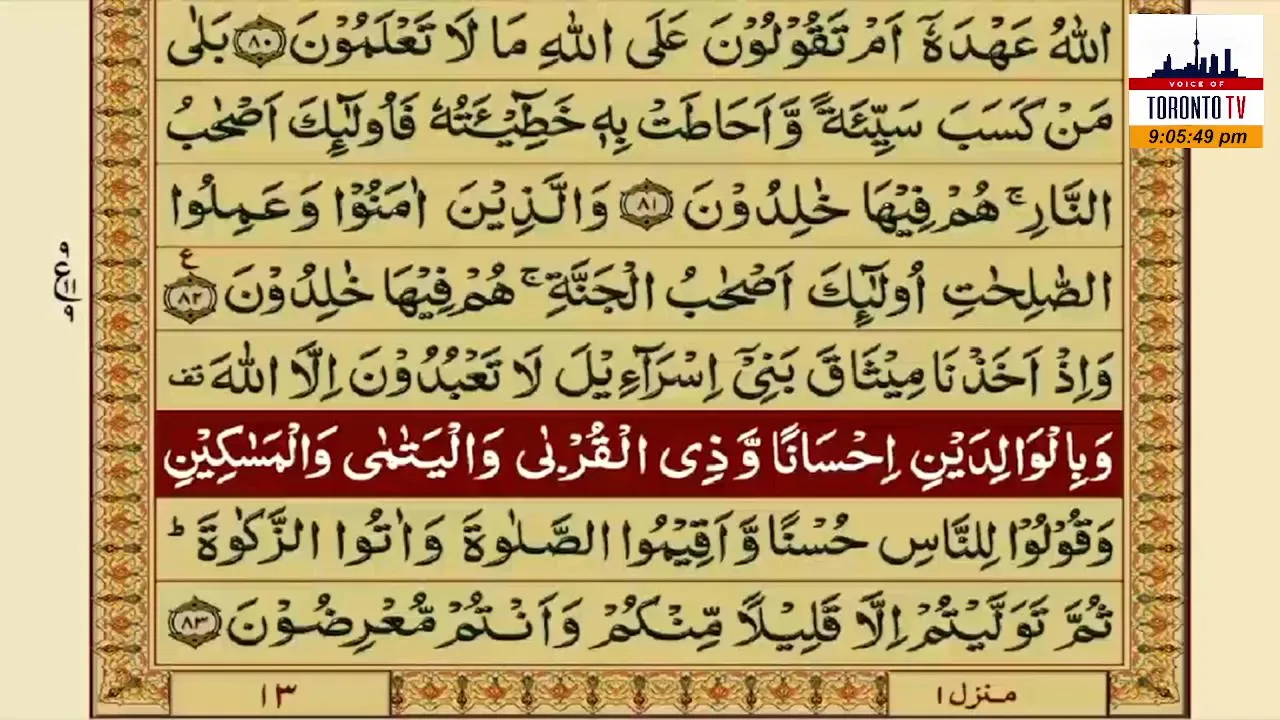 اللّٰهُ عَهْدَهٗۤ اَمْ تَقُوْلُوْنَ عَلَى اللّٰهِ مَا لَا تَعْلَمُوْنَ ۸۰ بَلٰى
مَنْ كَسَبَ سَیِّئَةً وَّ اَحَاطَتْ بِهٖ خَطِیْٓئَتُهٗ فَاُولٰٓىِٕكَ اَصْحٰبُ
النَّارِ ۚ هُمْ فِیْهَا خٰلِدُوْنَ ۸۱ وَالَّذِیْنَ اٰمَنُوْا وَعَمِلُوا
الصّٰلِحٰتِ اُولٰٓىِٕكَ اَصْحٰبُ الْجَنَّةِ ۚ هُمْ فِیْهَا خٰلِدُوْنَ ۸۲ ع
وَاِذْ اَخَذْنَا مِیْثَاقَ بَنِیْۤ اِسْرَآءِیْلَ لَا تَعْبُدُوْنَ اِلَّا اللّٰهَ قف
وَبِالْوَالِدَیْنِ اِحْسَانًا وَّذِی الْقُرْبٰى وَالْیَتٰمٰى وَالْمَسٰكِیْنِ
وَقُوْلُوْا لِلنَّاسِ حُسْنًا وَّاَقِیْمُوا الصَّلٰوةَ وَاٰتُوا الزَّكٰوةَ ؕ
ثُمَّ تَوَلَّیْتُمْ اِلَّا قَلِیْلًا مِّنْكُمْ وَاَنْتُمْ مُّعْرِضُوْنَ ۸۳
منزل ۱
۱۳
VOICE OF
TORONTO TV
9:05:49 pm